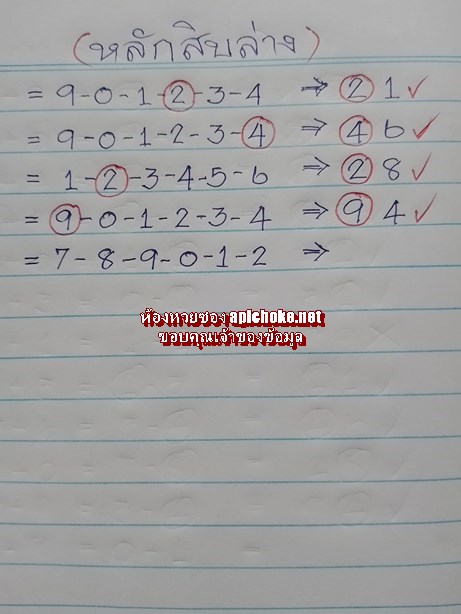 (หลักสิบล่าง)
= 9-0-1-2-3-4 ⇒ 2 1 ✓
= 9-0-1-2-3-4 ⇒ 4 6 ✓
= 1-2-3-4-5-6 ⇒ 2 8 ✓
= 9-0-1-2-3-4 ⇒ 9 4 ✓
= 7-8-9-0-1-2 ⇒
ห้องหวยซอง apichoke.net
ขอบคุณเจ้าของข้อมูล